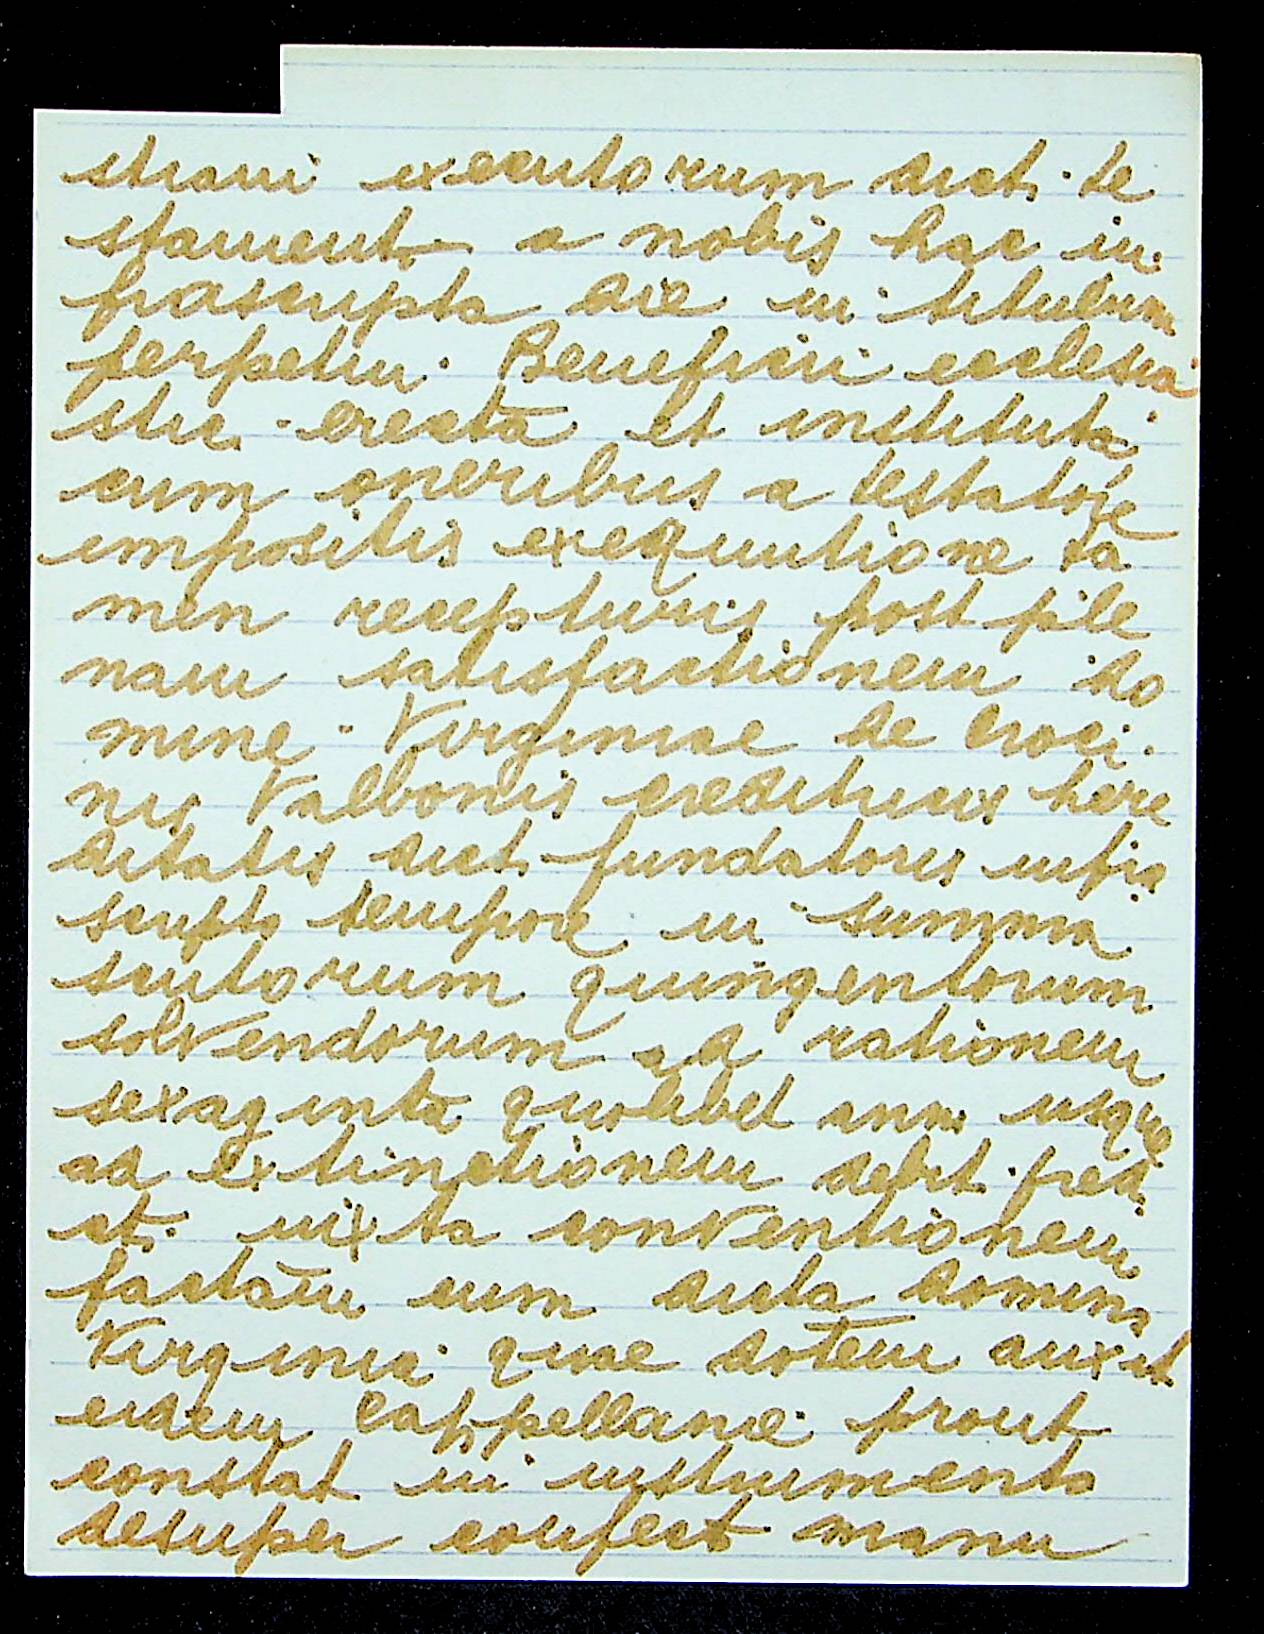 strani executorum dict. te
stament. a nobis hac in
frascripta die in titulum
perpetui Beneficii ecclesia
stic. erecta et instituta
cum oneribus a testatore
impositis exequutione ta
men recepturis post ple
nam satisfactionem do
mine Virginiae de Croci
nis Valbonis creditricis here
ditatis dict. fundatoris infra
scripto tempore in summa
scutorum quingentorum
solvendorum ad rationem
sexaginta quolibet anno usque
ad extinctionem debit. pred.
ct. iuxta conventionem
factam cum dicta domina
Virginia quae dotem auxit
eidem Cappellanie prout
constat in instrumento
desuper confecto manu